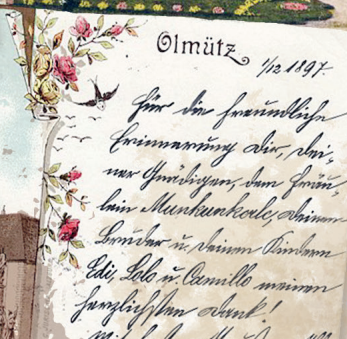 Olmütz
1/12 1897.
Für die freundliche
Erinnerung Dir, Dei-
ner Gnädigen, dem Fräu-
lein Deinem
Bruder u. Deinen Kindern
Edi, Lolo u. Camillo meinen
herzlichsten Dank!